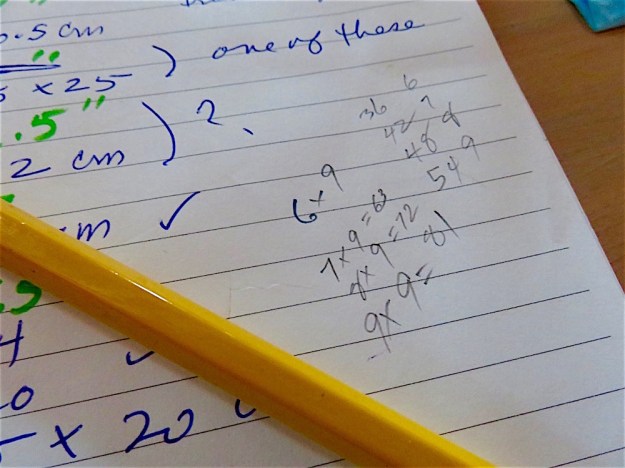 .5 cm
x 25 ) one of these
.5" ) ?
2 cm
cm ✓
36 6
42 7
48 8
54 9
6 x 9
7 x 9 = 63
8 x 9 = 72
9 x 9 = 81
x 20